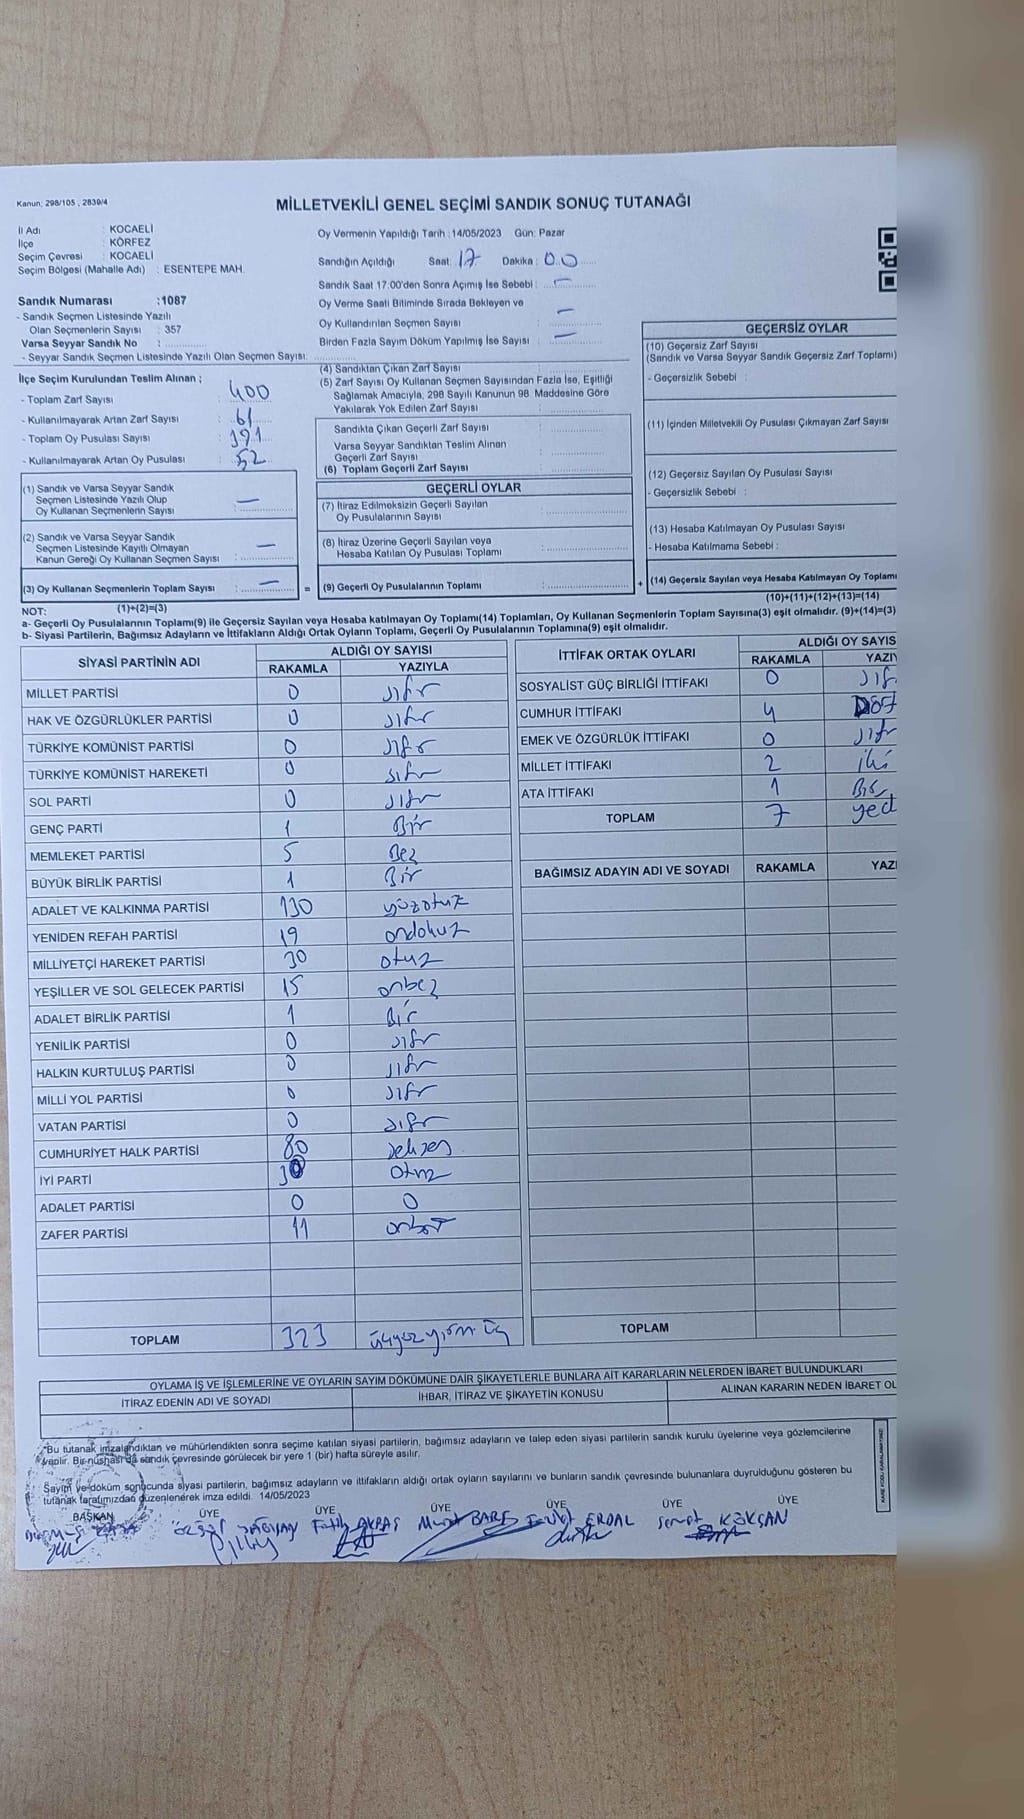 Kanun: 298/105 , 2839/4
MİLLETVEKİLİ GENEL SEÇİMİ SANDIK SONUÇ TUTANAĞI
İl Adı : KOCAELİ
İlçe : KÖRFEZ
Seçim Çevresi : KOCAELİ
Seçim Bölgesi (Mahalle Adı) : ESENTEPE MAH.
Sandık Numarası :1087
- Sandık Seçmen Listesinde Yazılı
Olan Seçmenlerin Sayısı : 357
Varsa Seyyar Sandık No :
- Seyyar Sandık Seçmen Listesinde Yazılı Olan Seçmen Sayısı:
Oy Vermenin Yapıldığı Tarih :14/05/2023 Gün: Pazar
Sandığın Açıldığı Saat: 17 Dakika : 00
Sandık Saat 17:00'den Sonra Açımış İse Sebebi : —
Oy Verme Saati Bitiminde Sırada Bekleyen ve
Oy Kullandırılan Seçmen Sayısı : —
Birden Fazla Sayım Döküm Yapılmış İse Sayısı : —
İlçe Seçim Kurulundan Teslim Alınan ;
- Toplam Zarf Sayısı : 400
- Kullanılmayarak Artan Zarf Sayısı : 61
- Toplam Oy Pusulası Sayısı : 391
- Kullanılmayarak Artan Oy Pusulası : 52
(1) Sandık ve Varsa Seyyar Sandık
Seçmen Listesinde Yazılı Olup
Oy Kullanan Seçmenlerin Sayısı : —
(2) Sandık ve Varsa Seyyar Sandık
Seçmen Listesinde Kayıtlı Olmayan
Kanun Gereği Oy Kullanan Seçmen Sayısı : —
(3) Oy Kullanan Seçmenlerin Toplam Sayısı : —
(4) Sandıktan Çıkan Zarf Sayısı :
(5) Zarf Sayısı Oy Kullanan Seçmen Sayısından Fazla İse, Eşitliği
Sağlamak Amacıyla, 298 Sayılı Kanunun 98 Maddesine Göre
Yakılarak Yok Edilen Zarf Sayısı :
Sandıkta Çıkan Geçerli Zarf Sayısı :
Varsa Seyyar Sandıktan Teslim Alınan
Geçerli Zarf Sayısı :
(6) Toplam Geçerli Zarf Sayısı :
GEÇERLİ OYLAR
(7) İtiraz Edilmeksizin Geçerli Sayılan
Oy Pusulalarının Sayısı :
(8) İtiraz Üzerine Geçerli Sayılan veya
Hesaba Katılan Oy Pusulası Toplamı :
= (9) Geçerli Oy Pusulalarının Toplamı :
GEÇERSİZ OYLAR
(10) Geçersiz Zarf Sayısı
(Sandık ve Varsa Seyyar Sandık Geçersiz Zarf Toplamı)
- Geçersizlik Sebebi :
(11) İçinden Milletvekili Oy Pusulası Çıkmayan Zarf Sayısı
(12) Geçersiz Sayılan Oy Pusulası Sayısı
- Geçersizlik Sebebi :
(13) Hesaba Katılmayan Oy Pusulası Sayısı
- Hesaba Katılmama Sebebi :
+ (14) Geçersiz Sayılan veya Hesaba Katılmayan Oy Toplamı
NOT: (1)+(2)=(3) (10)+(11)+(12)+(13)=(14)
a- Geçerli Oy Pusulalarının Toplamı(9) ile Geçersiz Sayılan veya Hesaba katılmayan Oy Toplamı(14) Toplamları, Oy Kullanan Seçmenlerin Toplam Sayısına(3) eşit olmalıdır. (9)+(14)=(3)
b- Siyasi Partilerin, Bağımsız Adayların ve İttifakların Aldığı Ortak Oyların Toplamı, Geçerli Oy Pusulalarının Toplamına(9) eşit olmalıdır.
SİYASİ PARTİNİN ADI ALDIĞI OY SAYISI
RAKAMLA YAZIYLA
MİLLET PARTİSİ 0 sıfır
HAK VE ÖZGÜRLÜKLER PARTİSİ 0 sıfır
TÜRKİYE KOMÜNİST PARTİSİ 0 sıfır
TÜRKİYE KOMÜNİST HAREKETİ 0 sıfır
SOL PARTİ 0 sıfır
GENÇ PARTİ 1 Bir
MEMLEKET PARTİSİ 5 Beş
BÜYÜK BİRLİK PARTİSİ 1 Bir
ADALET VE KALKINMA PARTİSİ 130 yüzotuz
YENİDEN REFAH PARTİSİ 19 ondokuz
MİLLİYETÇİ HAREKET PARTİSİ 30 otuz
YEŞİLLER VE SOL GELECEK PARTİSİ 15 onbeş
ADALET BİRLİK PARTİSİ 1 Bir
YENİLİK PARTİSİ 0 sıfır
HALKIN KURTULUŞ PARTİSİ 0 sıfır
MİLLİ YOL PARTİSİ 0 sıfır
VATAN PARTİSİ 0 sıfır
CUMHURİYET HALK PARTİSİ 80 seksen
İYİ PARTİ 30 otuz
ADALET PARTİSİ 0 0
ZAFER PARTİSİ 11 onbir
TOPLAM 323 üçyüzyirmi üç
İTTİFAK ORTAK OYLARI ALDIĞI OY SAYIS
RAKAMLA YAZIY
SOSYALİST GÜÇ BİRLİĞİ İTTİFAKI 0 sıf
CUMHUR İTTİFAKI 4 Dört
EMEK VE ÖZGÜRLÜK İTTİFAKI 0 sıfır
MİLLET İTTİFAKI 2 iki
ATA İTTİFAKI 1 Bir
TOPLAM 7 yed
BAĞIMSIZ ADAYIN ADI VE SOYADI RAKAMLA YAZI
TOPLAM
OYLAMA İŞ VE İŞLEMLERİNE VE OYLARIN SAYIM DÖKÜMÜNE DAİR ŞİKAYETLERLE BUNLARA AİT KARARLARIN NELERDEN İBARET BULUNDUKLARI
İTİRAZ EDENİN ADI VE SOYADI İHBAR, İTİRAZ VE ŞİKAYETİN KONUSU ALINAN KARARIN NEDEN İBARET OL
"Bu tutanak imzalandıktan ve mühürlendikten sonra seçime katılan siyasi partilerin, bağımsız adayların ve talep eden siyasi partilerin sandık kurulu üyelerine veya gözlemcilerine
verilir. Bir nüshası da sandık çevresinde görülecek bir yere 1 (bir) hafta süreyle asılır.
Sayım ve döküm sonucunda siyasi partilerin, bağımsız adayların ve ittifakların aldığı ortak oyların sayılarını ve bunların sandık çevresinde bulunanlara duyrulduğunu gösteren bu
tutanak tarafımızdan düzenlenerek imza edildi. 14/05/2023
BAŞKAN ÜYE ÜYE ÜYE ÜYE ÜYE ÜYE
Fatih AKBAŞ Murat BARIŞ ERDAL KÖKSAN